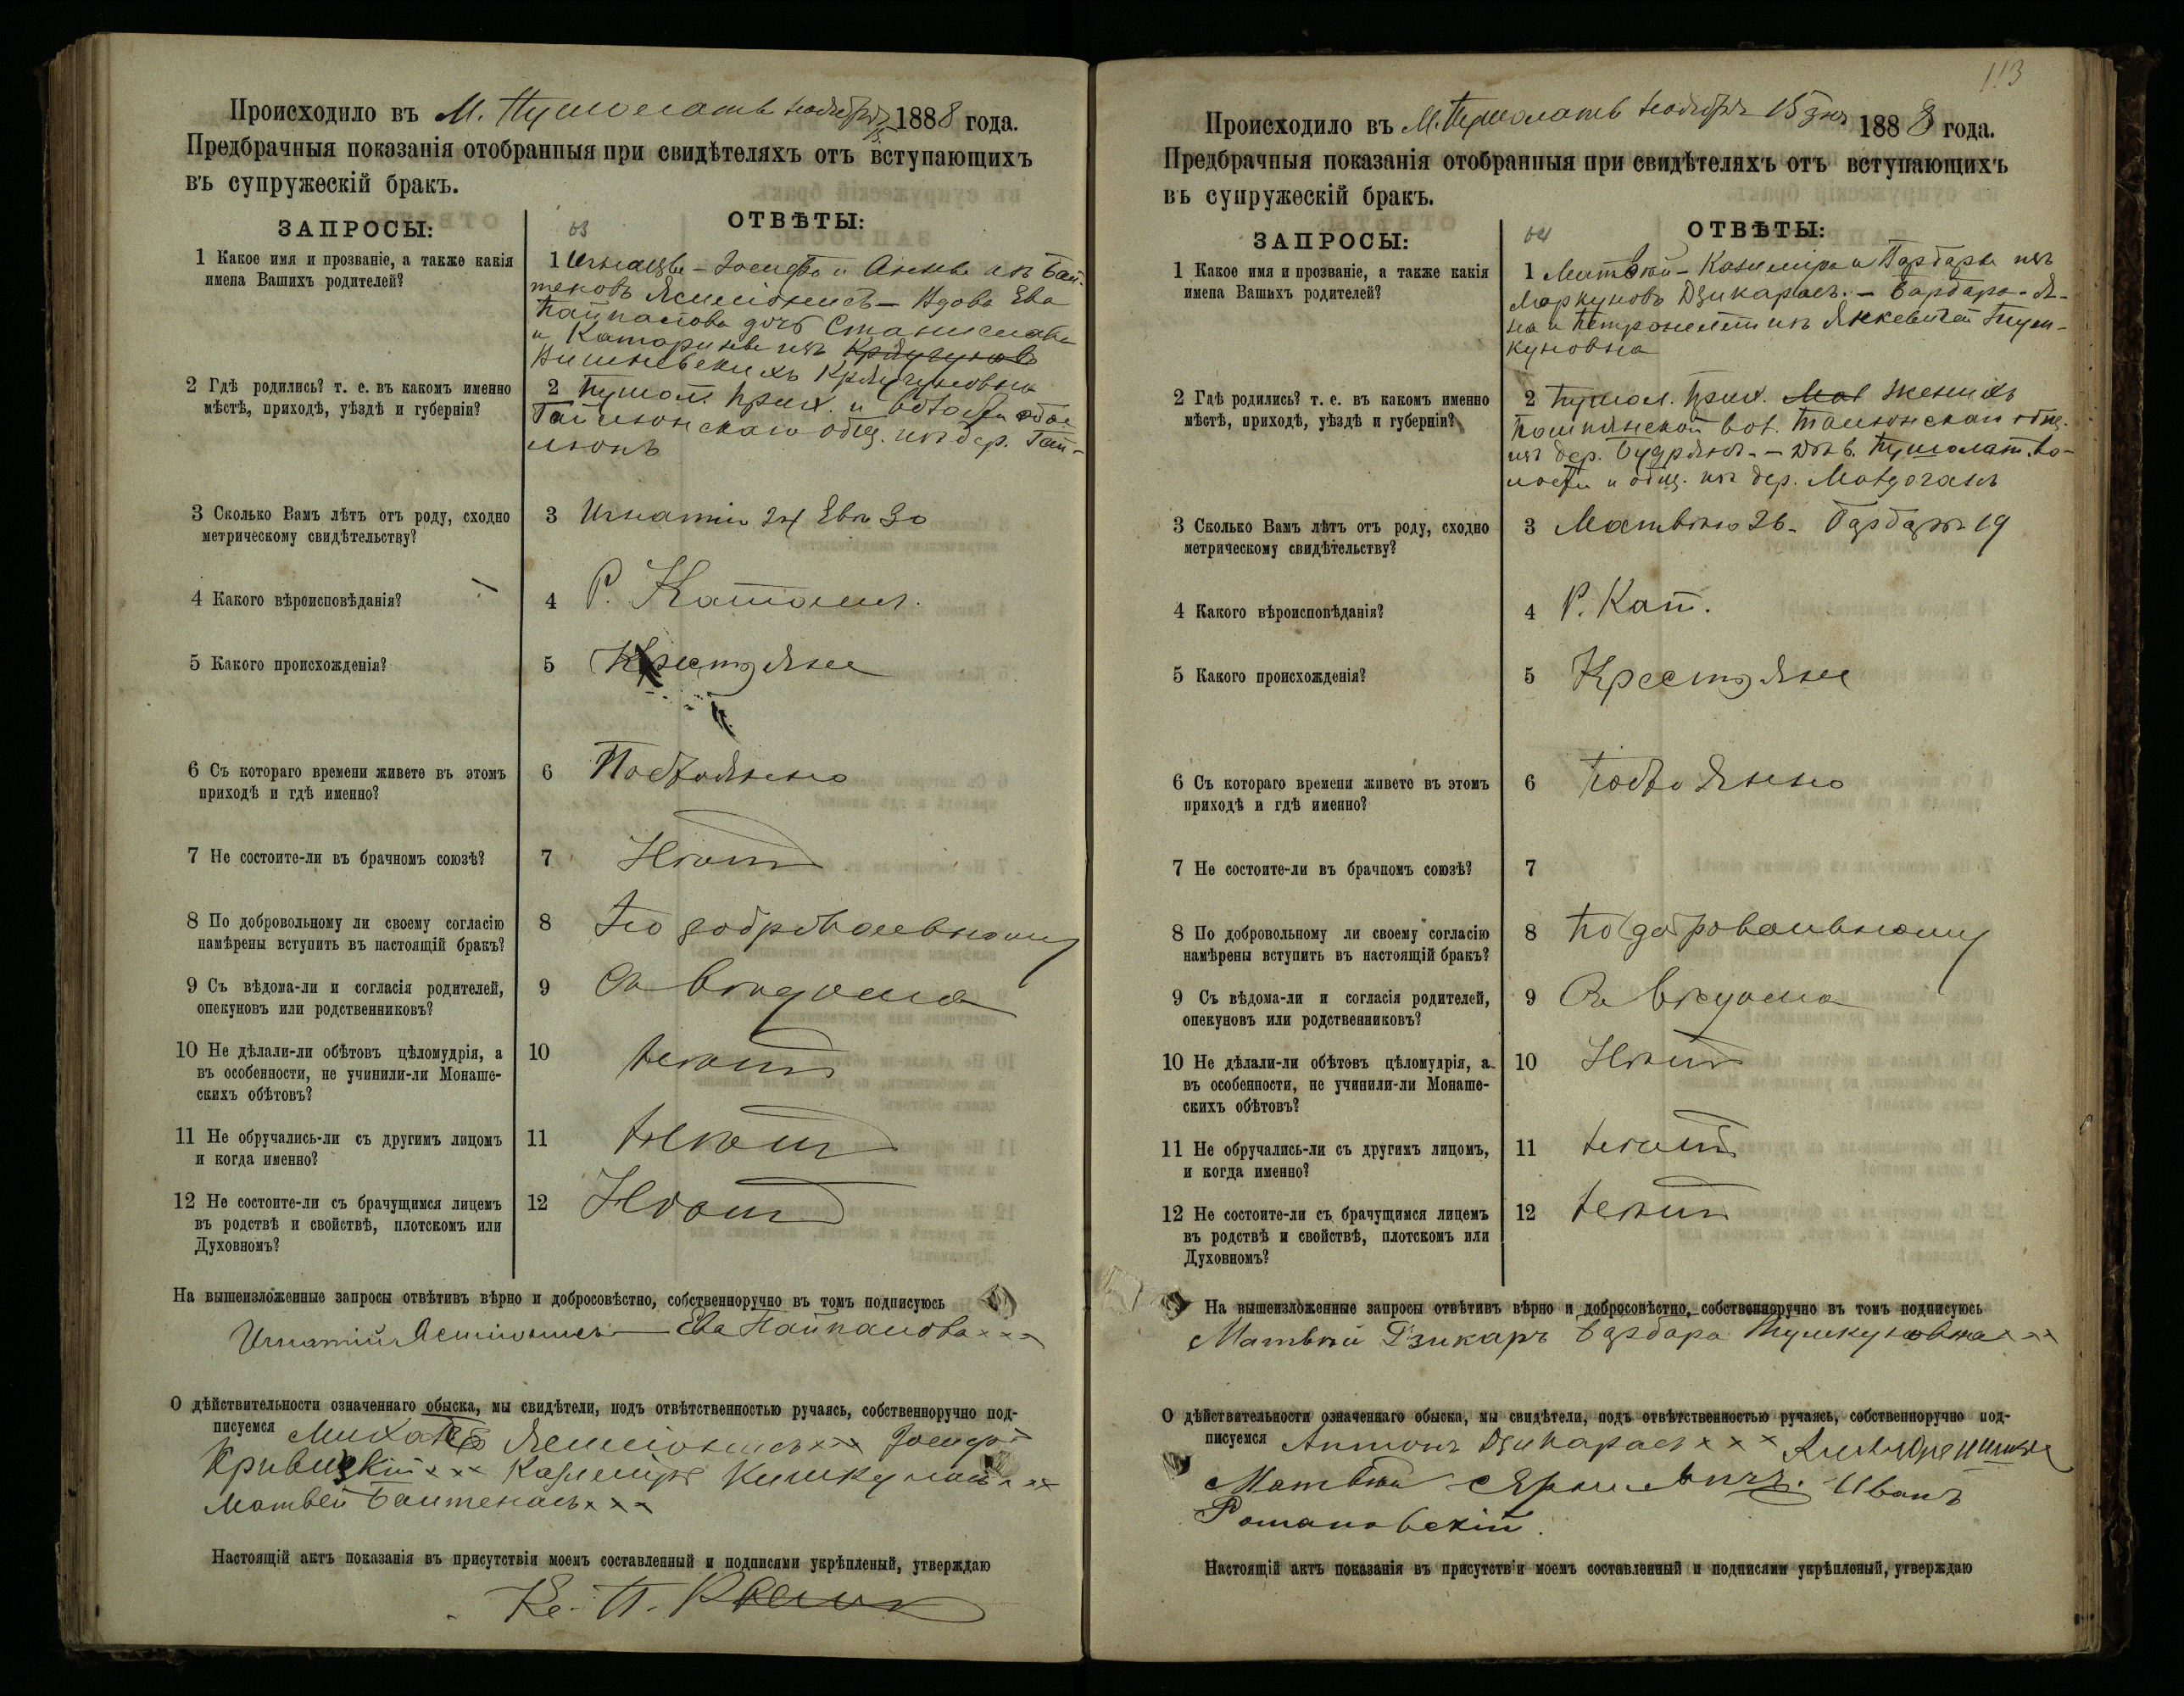 Происходило въ М. Пушолатѣ ноября 15 1888 года.
Предбрачныя показанія отобранныя при свидѣтеляхъ отъ вступающихъ
въ супружескій бракъ.
ЗАПРОСЫ:
63 ОТВѢТЫ:
1 Какое имя и прозваніе, а также какія
имена Вашихъ родителей?
1 Игнацы – Іосифа и Анны изъ Бай-
тековъ – Вдова Ева
Пайпалова дочь Станислава
и Катарины изъ
2 Гдѣ родились? т. е. въ какомъ именно
мѣстѣ, приходѣ, уѣздѣ и губерніи?
2 Пушол. прих. и волости обое
общ. изъ дер. Гай-
люнъ
3 Сколько Вамъ лѣтъ отъ роду, сходно
метрическому свидѣтельству?
3 Игнатію 24 Евѣ 30
4 Какого вѣроисповѣданія?
4 Р. Католич.
5 Какого происхожденія?
5 Крестьяне
6 Съ котораго времени живете въ этомъ
приходѣ и гдѣ именно?
6 Постоянно
7 Не состоите-ли въ брачномъ союзѣ?
7 Нѣтъ
8 По добровольному ли своему согласію
намѣрены вступить въ настоящій бракъ?
8 По добровольному
9 Съ вѣдома-ли и согласія родителей,
опекуновъ или родственниковъ?
9 Съ вѣдома
10 Не дѣлали-ли обѣтовъ цѣломудрія, а
въ особенности, не учинили-ли Монаше-
скихъ обѣтовъ?
10 Нѣтъ
11 Не обручались-ли съ другимъ лицомъ
и когда именно?
11 Нѣтъ
12 Не состоите-ли съ брачущимся лицемъ
въ родствѣ и свойствѣ, плотскомъ или
Духовномъ?
12 Нѣтъ
На вышеизложенные запросы отвѣтивъ вѣрно и добросовѣстно, собственноручно въ томъ подписуюсь
Игнатій Ева Пайпалова × × ×
О дѣйствительности означеннаго обыска, мы свидѣтели, подъ отвѣтственностью ручаясь, собственноручно под-
писуемся × × × Іосифъ
Кривицкій × × × Казиміръ × × ×
Матвей Байтекасъ × × ×
Настоящій актъ показанія въ присутствіи моемъ составленный и подписями укрѣпленый, утверждаю
Кс. П.
113
Происходило въ М. Пушолатѣ ноября 15 дня 1888 года.
Предбрачныя показанія отобранныя при свидѣтеляхъ отъ вступающихъ
въ супружескій бракъ.
ЗАПРОСЫ:
64 ОТВѢТЫ:
1 Какое имя и прозваніе, а также какія
имена Вашихъ родителей?
1 Матвѣй – Казиміра и Барбары изъ
Маркуновъ Дзикарасъ. – Барбара – Я-
на и Петронели изъ Янкевичей Тум-
куновна
2 Гдѣ родились? т. е. въ какомъ именно
мѣстѣ, приходѣ, уѣздѣ и губерніи?
2 Пушол. прих. Женихъ
вол. общ.
изъ дер. – Пушолат. во-
лости и общ. изъ дер.
3 Сколько Вамъ лѣтъ отъ роду, сходно
метрическому свидѣтельству?
3 Матвѣю 26 – Барбарѣ 19
4 Какого вѣроисповѣданія?
4 Р. Кат.
5 Какого происхожденія?
5 Крестьяне
6 Съ котораго времени живете въ этомъ
приходѣ и гдѣ именно?
6 Постоянно
7 Не состоите-ли въ брачномъ союзѣ?
7
8 По добровольному ли своему согласію
намѣрены вступить въ настоящій бракъ?
8 По добровольному
9 Съ вѣдома-ли и согласія родителей,
опекуновъ или родственниковъ?
9 Съ вѣдома
10 Не дѣлали-ли обѣтовъ цѣломудрія, а
въ особенности, не учинили-ли Монаше-
скихъ обѣтовъ?
10 Нѣтъ
11 Не обручались-ли съ другимъ лицомъ,
и когда именно?
11 Нѣтъ
12 Не состоите-ли съ брачущимся лицемъ
въ родствѣ и свойствѣ, плотскомъ или
Духовномъ?
12 Нѣтъ
На вышеизложенные запросы отвѣтивъ вѣрно и добросовѣстно, собственноручно въ томъ подписуюсь
Матвѣй Дзикаръ Барбара Тумкуновна × × ×
О дѣйствительности означеннаго обыска, мы свидѣтели, подъ отвѣтственностью ручаясь, собственноручно под-
писуемся Антонъ Дзикарасъ × × ×
Матвѣй Иванъ
Романовскій.
Настоящій актъ показанія въ присутствіи моемъ составленный и подписями укрѣпленый, утверждаю